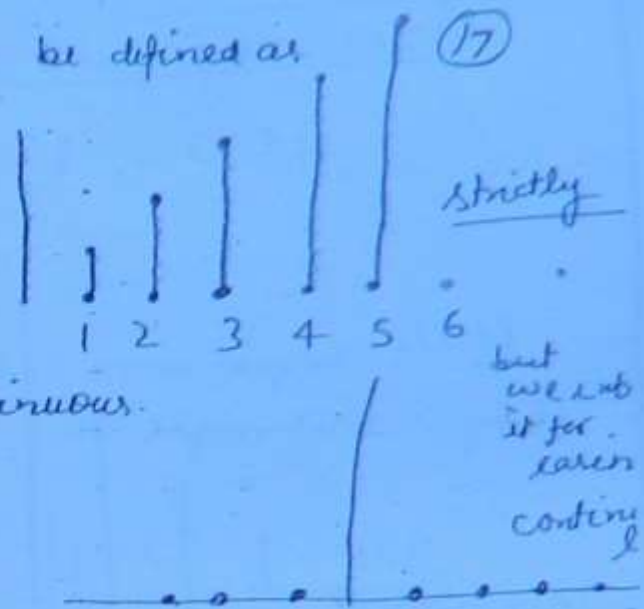 be defined as
17
strictly
1 2 3 4 5 6
inuous.
but
we
it for
contin